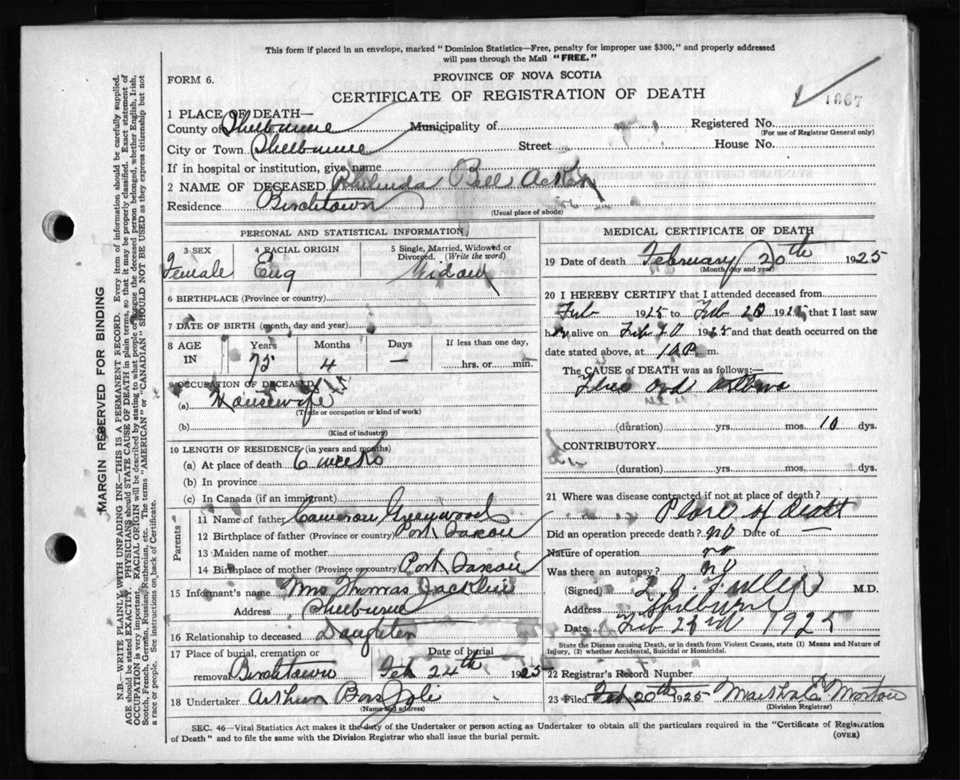 This form if placed in an envelope, marked "Dominion Statistics—Free, penalty for improper use $300," and properly addressed
will pass through the Mail "FREE."
FORM 6.
PROVINCE OF NOVA SCOTIA
CERTIFICATE OF REGISTRATION OF DEATH
1667
1 PLACE OF DEATH—
County of Shelburne Municipality of Registered No.
(For use of Registrar General only)
City or Town Shelburne Street House No.
If in hospital or institution, give name
2 NAME OF DECEASED Bell Acker
Residence Birchtown
(Usual place of abode)
PERSONAL AND STATISTICAL INFORMATION
3 SEX 4 RACIAL ORIGIN 5 Single, Married, Widowed or Divorced. (Write the word)
Female Eng Widow
6 BIRTHPLACE (Province or country)
7 DATE OF BIRTH (month, day and year)
8 AGE IN Years Months Days If less than one day,
72 4 — hrs. or min.
9 OCCUPATION OF DECEASED
(a) Housewife
(Trade or occupation or kind of work)
(b)
(Kind of industry)
10 LENGTH OF RESIDENCE (in years and months)
(a) At place of death 6 weeks
(b) In province
(c) In Canada (if an immigrant)
Parents
11 Name of father Cameron Greenwood
12 Birthplace of father (Province or country) Port Saxon
13 Maiden name of mother
14 Birthplace of mother (Province or country) Port Saxon
15 Informant's name Mrs Thomas Jacklin
Address Shelburne
16 Relationship to deceased Daughter
17 Place of burial, cremation or removal Date of burial
Birchtown Feb 24th 1925
18 Undertaker Arthur
(Name and address)
MEDICAL CERTIFICATE OF DEATH
19 Date of death February 20th 1925
(Month, day and year)
20 I HEREBY CERTIFY that I attended deceased from
Feb 1925 to Feb 20 1925 that I last saw
her alive on Feb 20 1925 and that death occurred on
date stated above, at m.
The CAUSE of DEATH was as follows:—
Flue and
(duration) yrs. mos. 10 dys.
CONTRIBUTORY.
(duration) yrs. mos. dys.
21 Where was disease contracted if not at place of death?
Place of death
Did an operation precede death? no Date of
Nature of operation no
Was there an autopsy? no
(Signed) L. O. Fuller M.D.
Address Shelburne
Date Feb 23rd 1925
State the Disease causing Death, or in death from Violent Causes, state (1) Means and Nature of
Injury, (2) whether Accidental, Suicidal or Homicidal.
22 Registrar's Record Number
23 Filed Feb 20th 1925 Martha E Morton
(Division Registrar)
SEC. 46—Vital Statistics Act makes it the duty of the Undertaker or person acting as Undertaker to obtain all the particulars required in the "Certificate of Registration
of Death" and to file the same with the Division Registrar who shall issue the burial permit.
(OVER)
MARGIN RESERVED FOR BINDING
N.B.—WRITE PLAINLY, WITH UNFADING INK—THIS IS A PERMANENT RECORD. Every item of information should be carefully supplied.
AGE should be stated EXACTLY. PHYSICIANS should STATE CAUSE OF DEATH in plain terms, so that it may be properly classified. Exact statement of
OCCUPATION is very important. RACIAL ORIGIN will be described by stating to what people or race the deceased person belonged, whether English, Irish,
Scotch, French, German, Russian, Ruthenian, etc. The terms "AMERICAN" or "CANADIAN" SHOULD NOT BE USED as they express citizenship but not
a race or people. See instructions on back of Certificate.